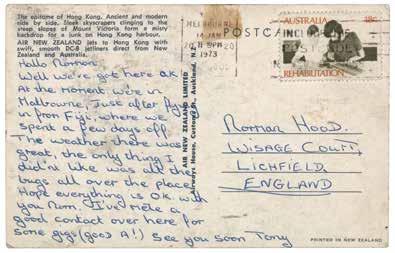 The epitome of Hong Kong. Ancient and modern
side by side. Sleek skyscrapers clinging to the
steep slopes of Mount Victoria form a misty
backdrop for a junk on Hong Kong harbour.
AIR NEW ZEALAND jets to Hong Kong with
swift, smooth DC-8 jetliners direct from New
Zealand and Australia.
Hello Norman,
Well we've got here O.K!
At the moment we're in
Melbourne, Just after flying
in from Fiji, where we
spent a few days off.
The weather there was
great, the only thing I
didn't like was all the
bugs all over the place.
Hope everything is OK with
you Norm. I've made a
good contact over here for
some gigs (good A!) See you soon Tony
AIR NEW ZEALAND LIMITED
Airways House, Customs St., Auckland,
POSTCA
MELBOURNE
14 JAN
8 PM
1973
AUSTRALIA 18c
REHABILITATION
INCLUDE
POSTCODE
Norman Hood.
Wisage Court
LICHFIELD.
ENGLAND
PRINTED IN NEW ZEALAND